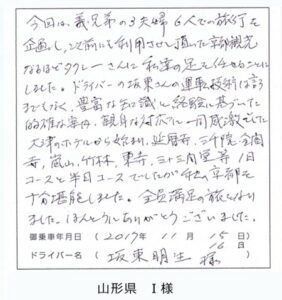 今回は、義兄弟の3夫婦6人での旅行を
企画し、以前にも利用させて頂いた京都観光
なるほどタクシーさんに私達の足を任せることに
しました。ドライバーの坂東さんの運転技術は言う
までもなく、豊富な知識と経験に基づいた
的確な案内、親身な対応に一同感激でした
大津のホテルから始まり、延暦寺、三千院、金閣
寺、嵐山、竹林、東寺、三十三間堂等 1日
コースと半日コースでしたが秋の京都を
十分堪能しました。全員満足の旅となり
ました。ほんとうにありがとうございました。
御乗車年月日 (2017年 11月 15日)
16日
ドライバー名 (坂東明生 様)
山形県 I様